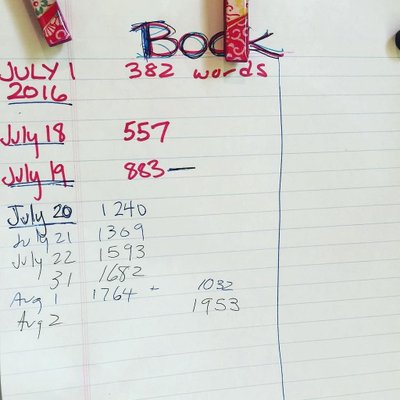 BOOK
JULY 1 382 words
2016
July 18 557
July 19 883 —
July 20 1240
July 21 1309
July 22 1593
31 1682
Aug 1 1764 - 1032
Aug 2 1953